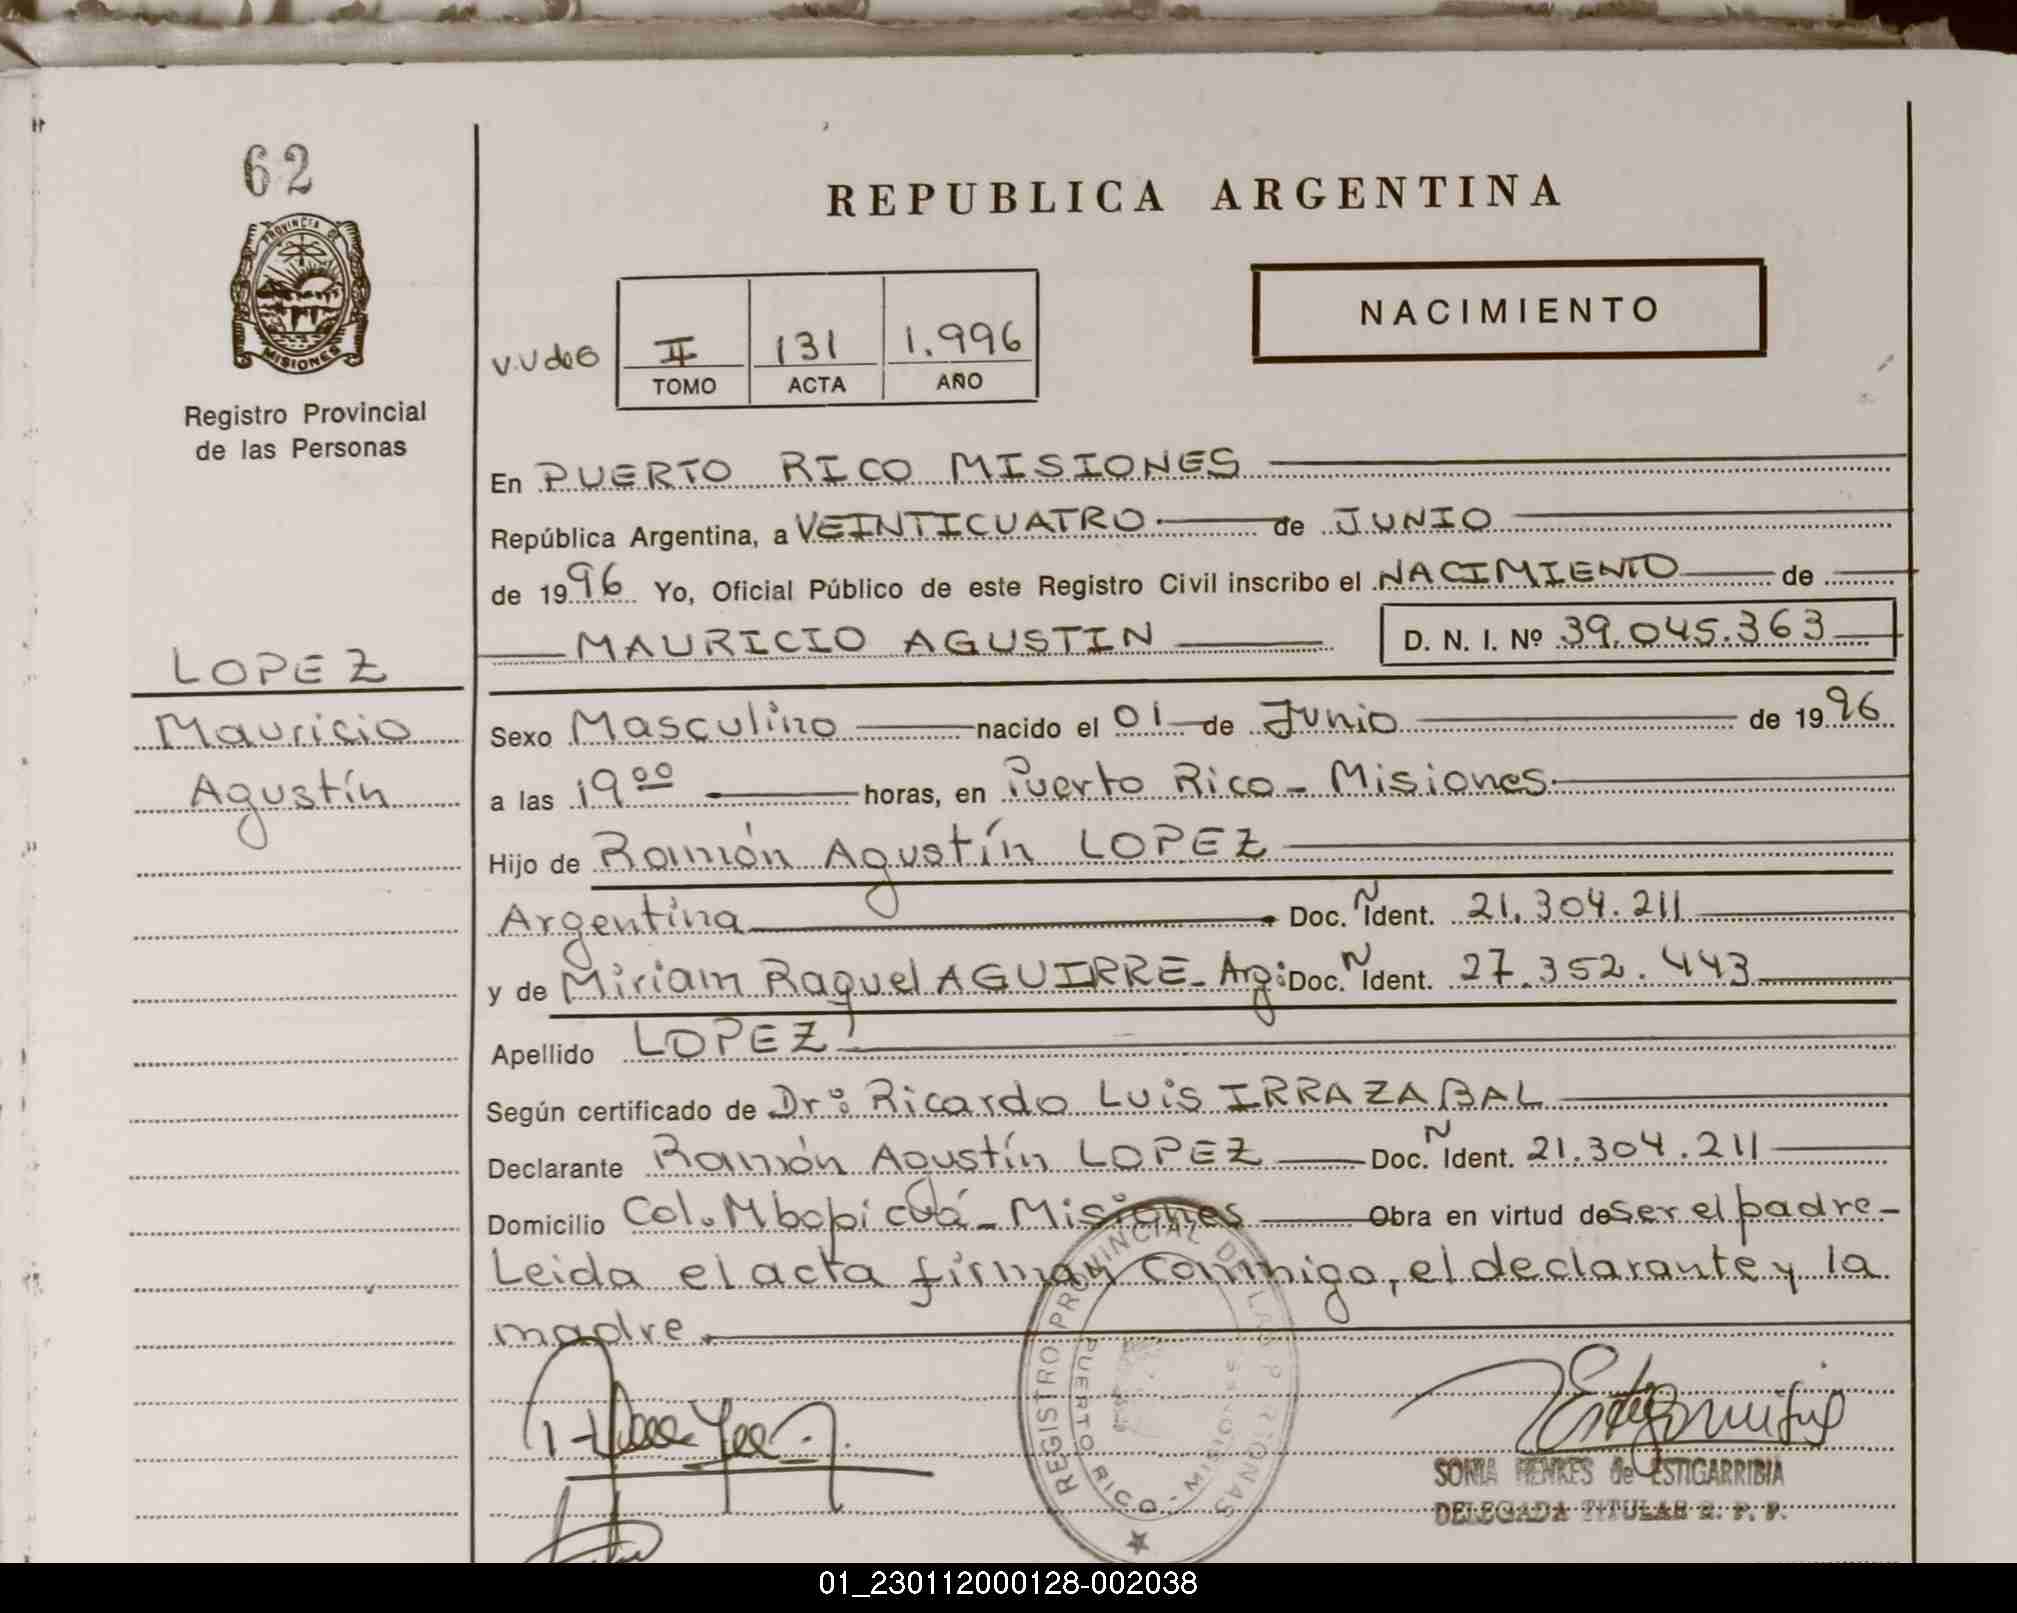 62
PROVINCIA DE
MISIONES
Registro Provincial
de las Personas
LOPEZ
Mauricio
Agustín
REPUBLICA ARGENTINA
NACIMIENTO
II 131 1.996
TOMO ACTA AÑO
En PUERTO RICO MISIONES
República Argentina, a VEINTICUATRO de JUNIO
de 1996 Yo, Oficial Público de este Registro Civil inscribo el NACIMIENTO de
MAURICIO AGUSTIN D. N. I. Nº 39.045.363
Sexo Masculino nacido el 01 de Junio de 1996
a las 19 00 horas, en Puerto Rico - Misiones
Hijo de Ramón Agustín LOPEZ
Argentina Doc. Ñ Ident. 21.304.211
y de Miriam Raquel AGUIRRE - Arg: Doc. Ñ Ident. 27.352.443
Apellido LOPEZ
Según certificado de Dr: Ricardo Luis IRRAZABAL
Declarante Ramón Agustín LOPEZ Doc. Ñ Ident. 21.304.211
Domicilio Col. Mbopicuá - Misiones Obra en virtud de ser el padre -
Leida el acta firman conmigo, el declarante y la
madre.
REGISTRO PROVINCIAL DE LAS PERSONAS
PUERTO RICO - MISIONES
SONIA HENKES de ESTIGARRIBIA
DELEGADA TITULAR R. P. P.
01_230112000128-002038